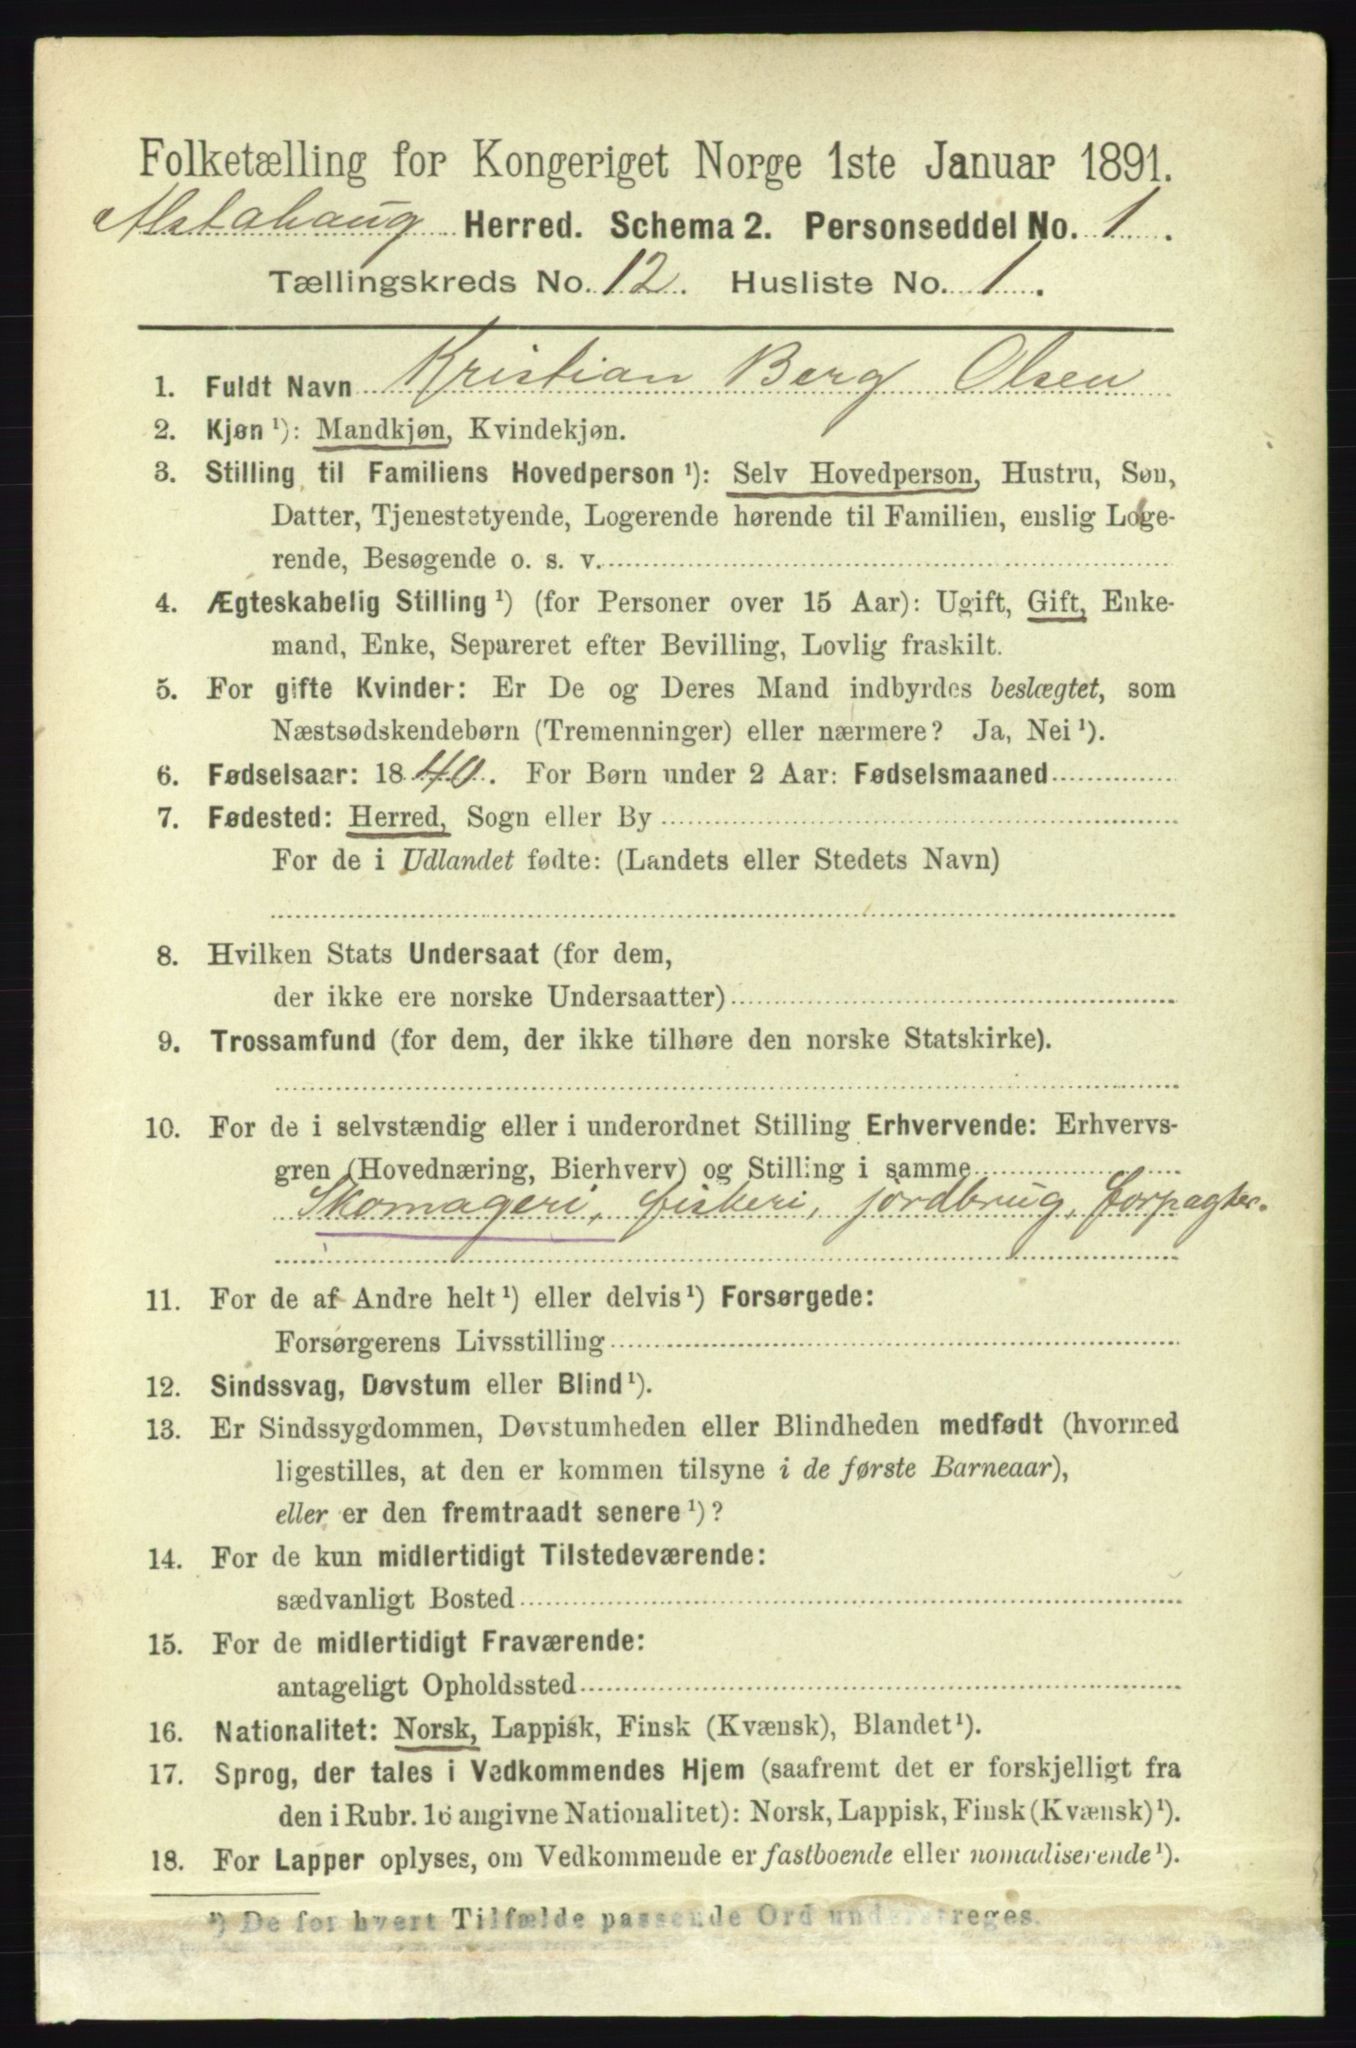 Folketælling for Kongeriget Norge 1ste Januar 1891.
Alstahaug Herred. Schema 2. Personseddel No. 1.
Tællingskreds No. 12. Husliste No. 1.
1. Fuldt Navn Kristian Berg Olsen
2. Kjøn ¹): Mandkjøn, Kvindekjøn.
3. Stilling til Familiens Hovedperson ¹): Selv Hovedperson, Hustru, Søn,
Datter, Tjenestetyende, Logerende hørende til Familien, enslig Loge-
rende, Besøgende o. s. v.
4. Ægteskabelig Stilling ¹) (for Personer over 15 Aar): Ugift, Gift, Enke-
mand, Enke, Separeret efter Bevilling, Lovlig fraskilt.
5. For gifte Kvinder: Er De og Deres Mand indbyrdes beslægtet, som
Næstsødskendebørn (Tremenninger) eller nærmere? Ja, Nei ¹).
6. Fødselsaar: 1840. For Børn under 2 Aar: Fødselsmaaned
7. Fødested: Herred, Sogn eller By
For de i Udlandet fødte: (Landets eller Stedets Navn)
8. Hvilken Stats Undersaat (for dem,
der ikke ere norske Undersaatter)
9. Trossamfund (for dem, der ikke tilhøre den norske Statskirke).
10. For de i selvstændig eller i underordnet Stilling Erhvervende: Erhvervs-
gren (Hovednæring, Bierhverv) og Stilling i samme
Skomageri, fiskeri, jordbrug, forpagter.
11. For de af Andre helt ¹) eller delvis ¹) Forsørgede:
Forsørgerens Livsstilling
12. Sindssvag, Døvstum eller Blind ¹).
13. Er Sindssygdommen, Døvstumheden eller Blindheden medfødt (hvormed
ligestilles, at den er kommen tilsyne i de første Barneaar),
eller er den fremtraadt senere ¹)?
14. For de kun midlertidigt Tilstedeværende:
sædvanligt Bosted
15. For de midlertidigt Fraværende:
antageligt Opholdssted
16. Nationalitet: Norsk, Lappisk, Finsk (Kvænsk), Blandet ¹).
17. Sprog, der tales i Vedkommendes Hjem (saafremt det er forskjelligt fra
den i Rubr. 16 angivne Nationalitet): Norsk, Lappisk, Finsk (Kvænsk) ¹).
18. For Lapper oplyses, om Vedkommende er fastboende eller nomadiserende ¹).
¹) De for hvert Tilfælde passende Ord understreges.